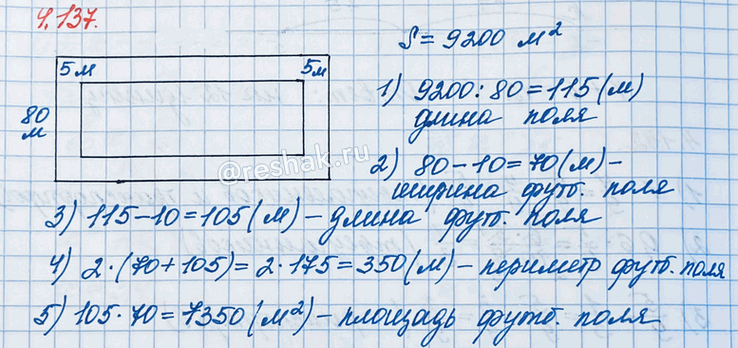 4.137.
S = 9200 м²
5м 5м
80 м
1) 9200 : 80 = 115 (м)
длина поля
2) 80 – 10 = 70 (м) –
ширина футб. поля
@reshak.ru
3) 115 – 10 = 105 (м) – длина футб. поля
4) 2 · (70 + 105) = 2 · 175 = 350 (м) – периметр футб. поля
5) 105 · 70 = 7350 (м²) – площадь футб. поля